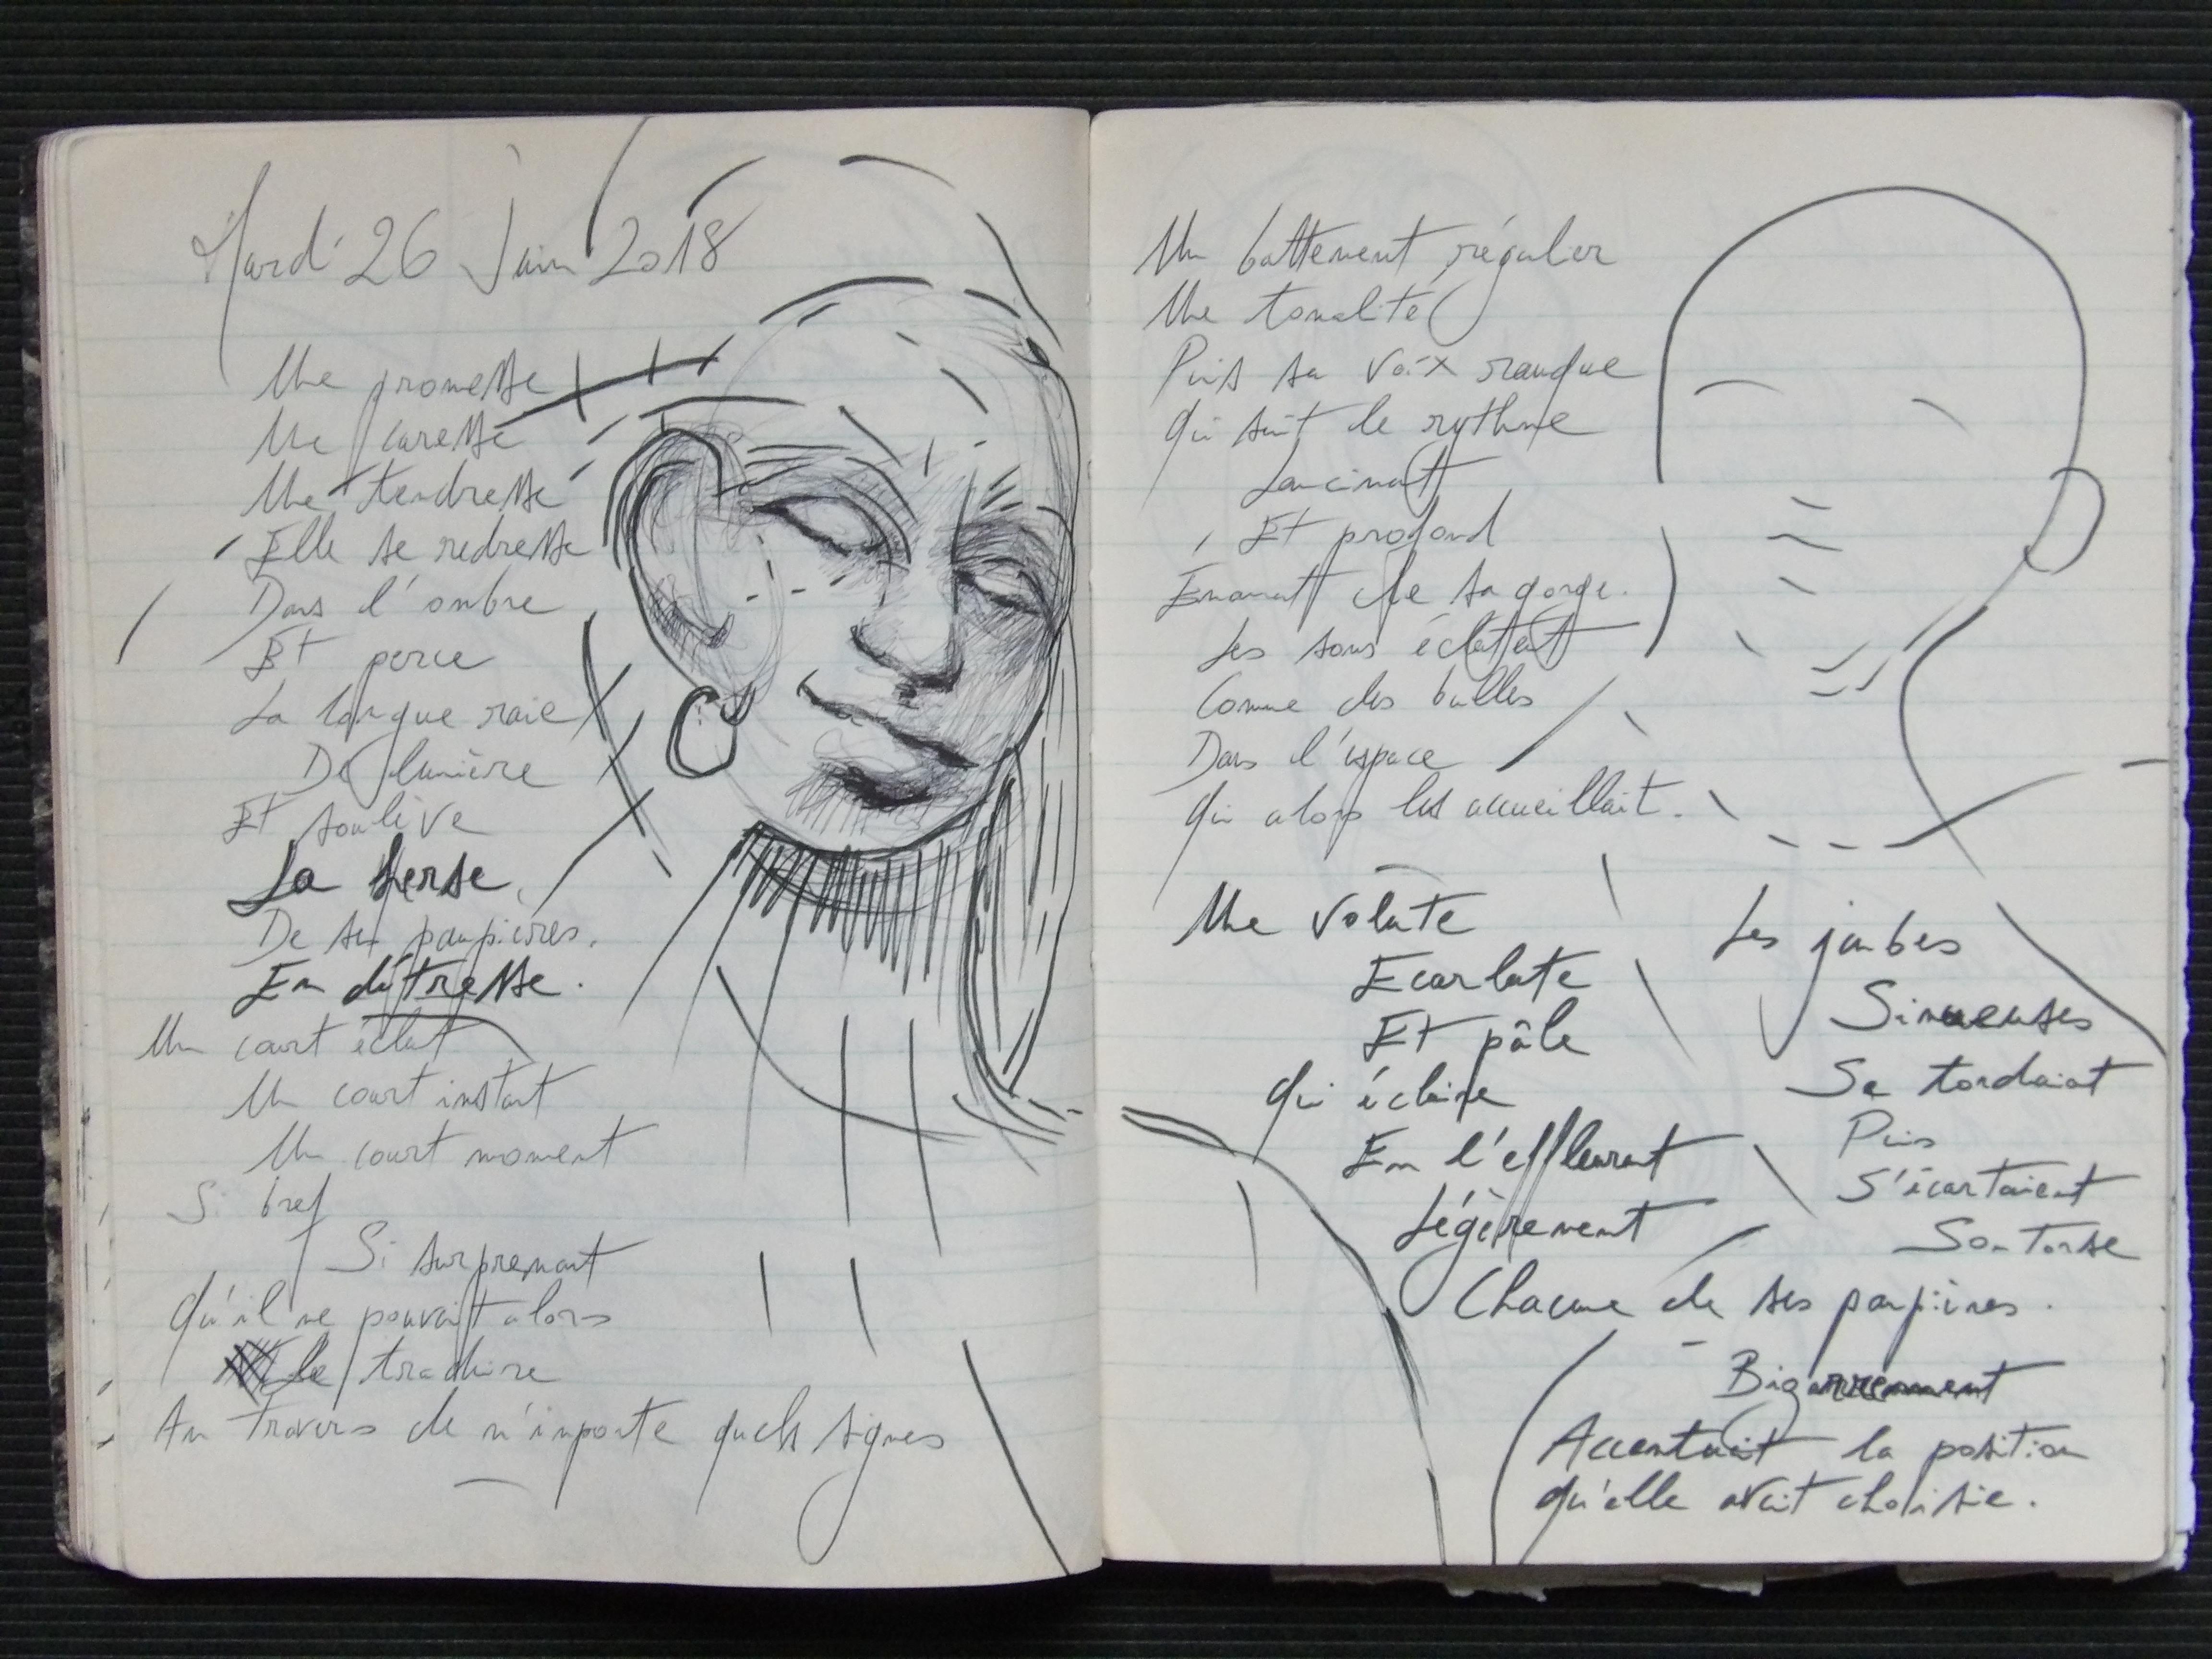 Mardi 26 Juin 2018
Une promesse
Une caresse
Une tendresse
Elle se redresse
Dans l'ombre
Et perce
La longue raie
De lumière
Et soulève
La herse
De ses paupières.
En détresse.
Un court éclat
Un court instant
Un court moment
Si bref
Si surprenant
Qu'il ne pouvait alors
le traduire
Au travers de n'importe quels signes
Un battement régulier
Une tonalité
Puis sa voix rauque
Qui suit le rythme
Lancinant
Et profond
Émanant de sa gorge.
Les sons éclatent
Comme des bulles
Dans l'espace
Qui alors les accueillait.
Une volute
Ecarlate
Et pâle
Qui éclaire
En l'effleurant
Légèrement
Chacune de ses paupières.
Les jambes
Sinueuses
Se tordaient
Puis
S'écartaient
Son torse
Bizarrement
Accentuait la position
Qu'elle avait choisie.